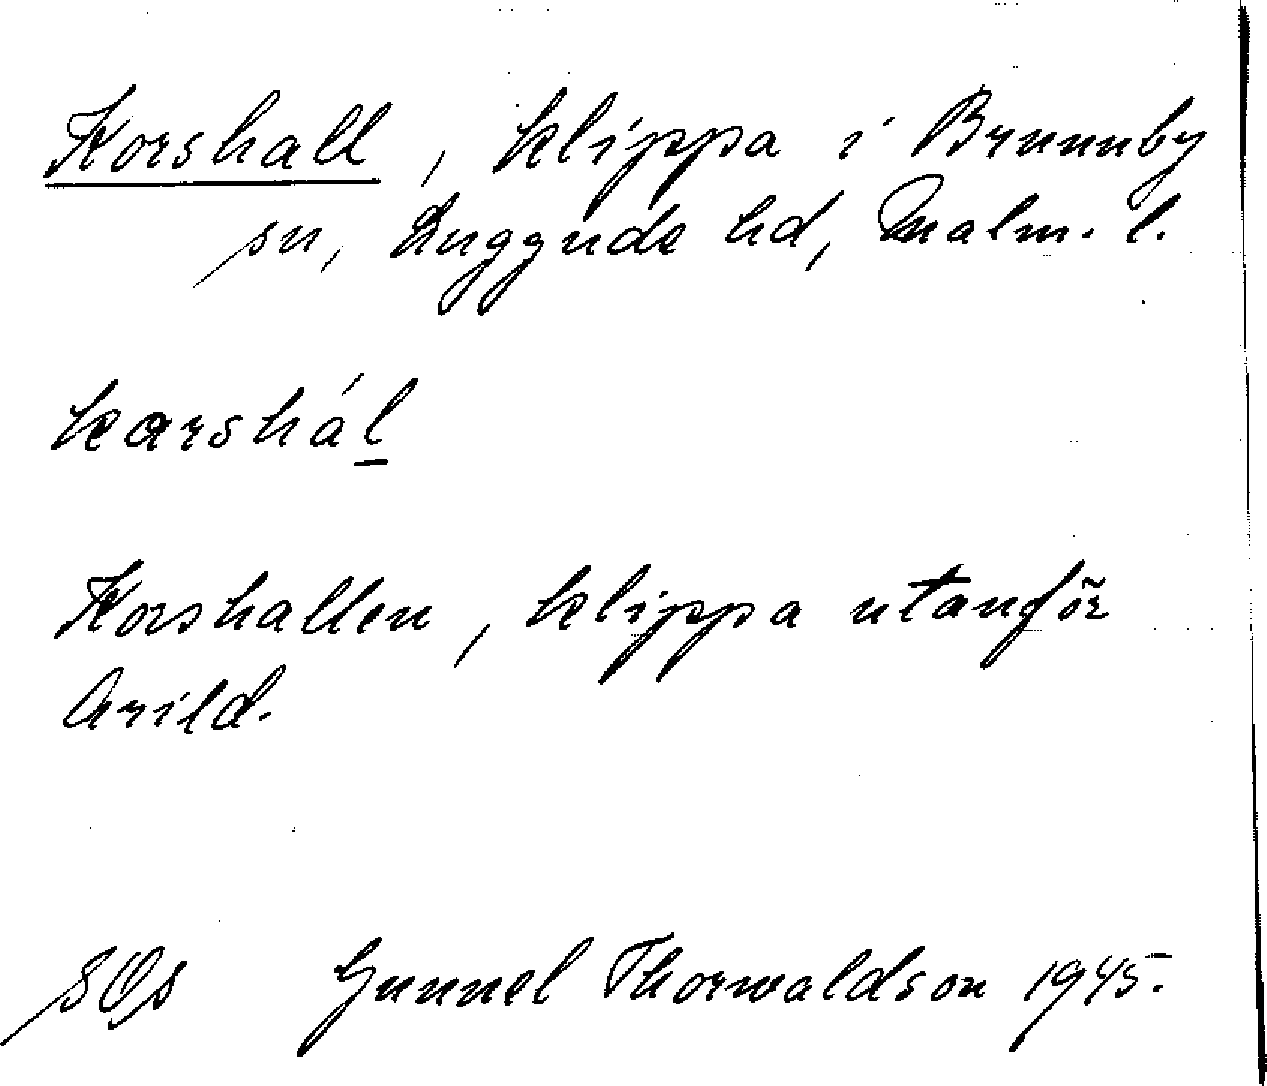 Korshall, klippa i Brunnby
sn, Luggude hd, Malm. l.
karshál
Korshallen, klippa utanför
Arild.
SOS Gunnel Thorwaldson 1945.